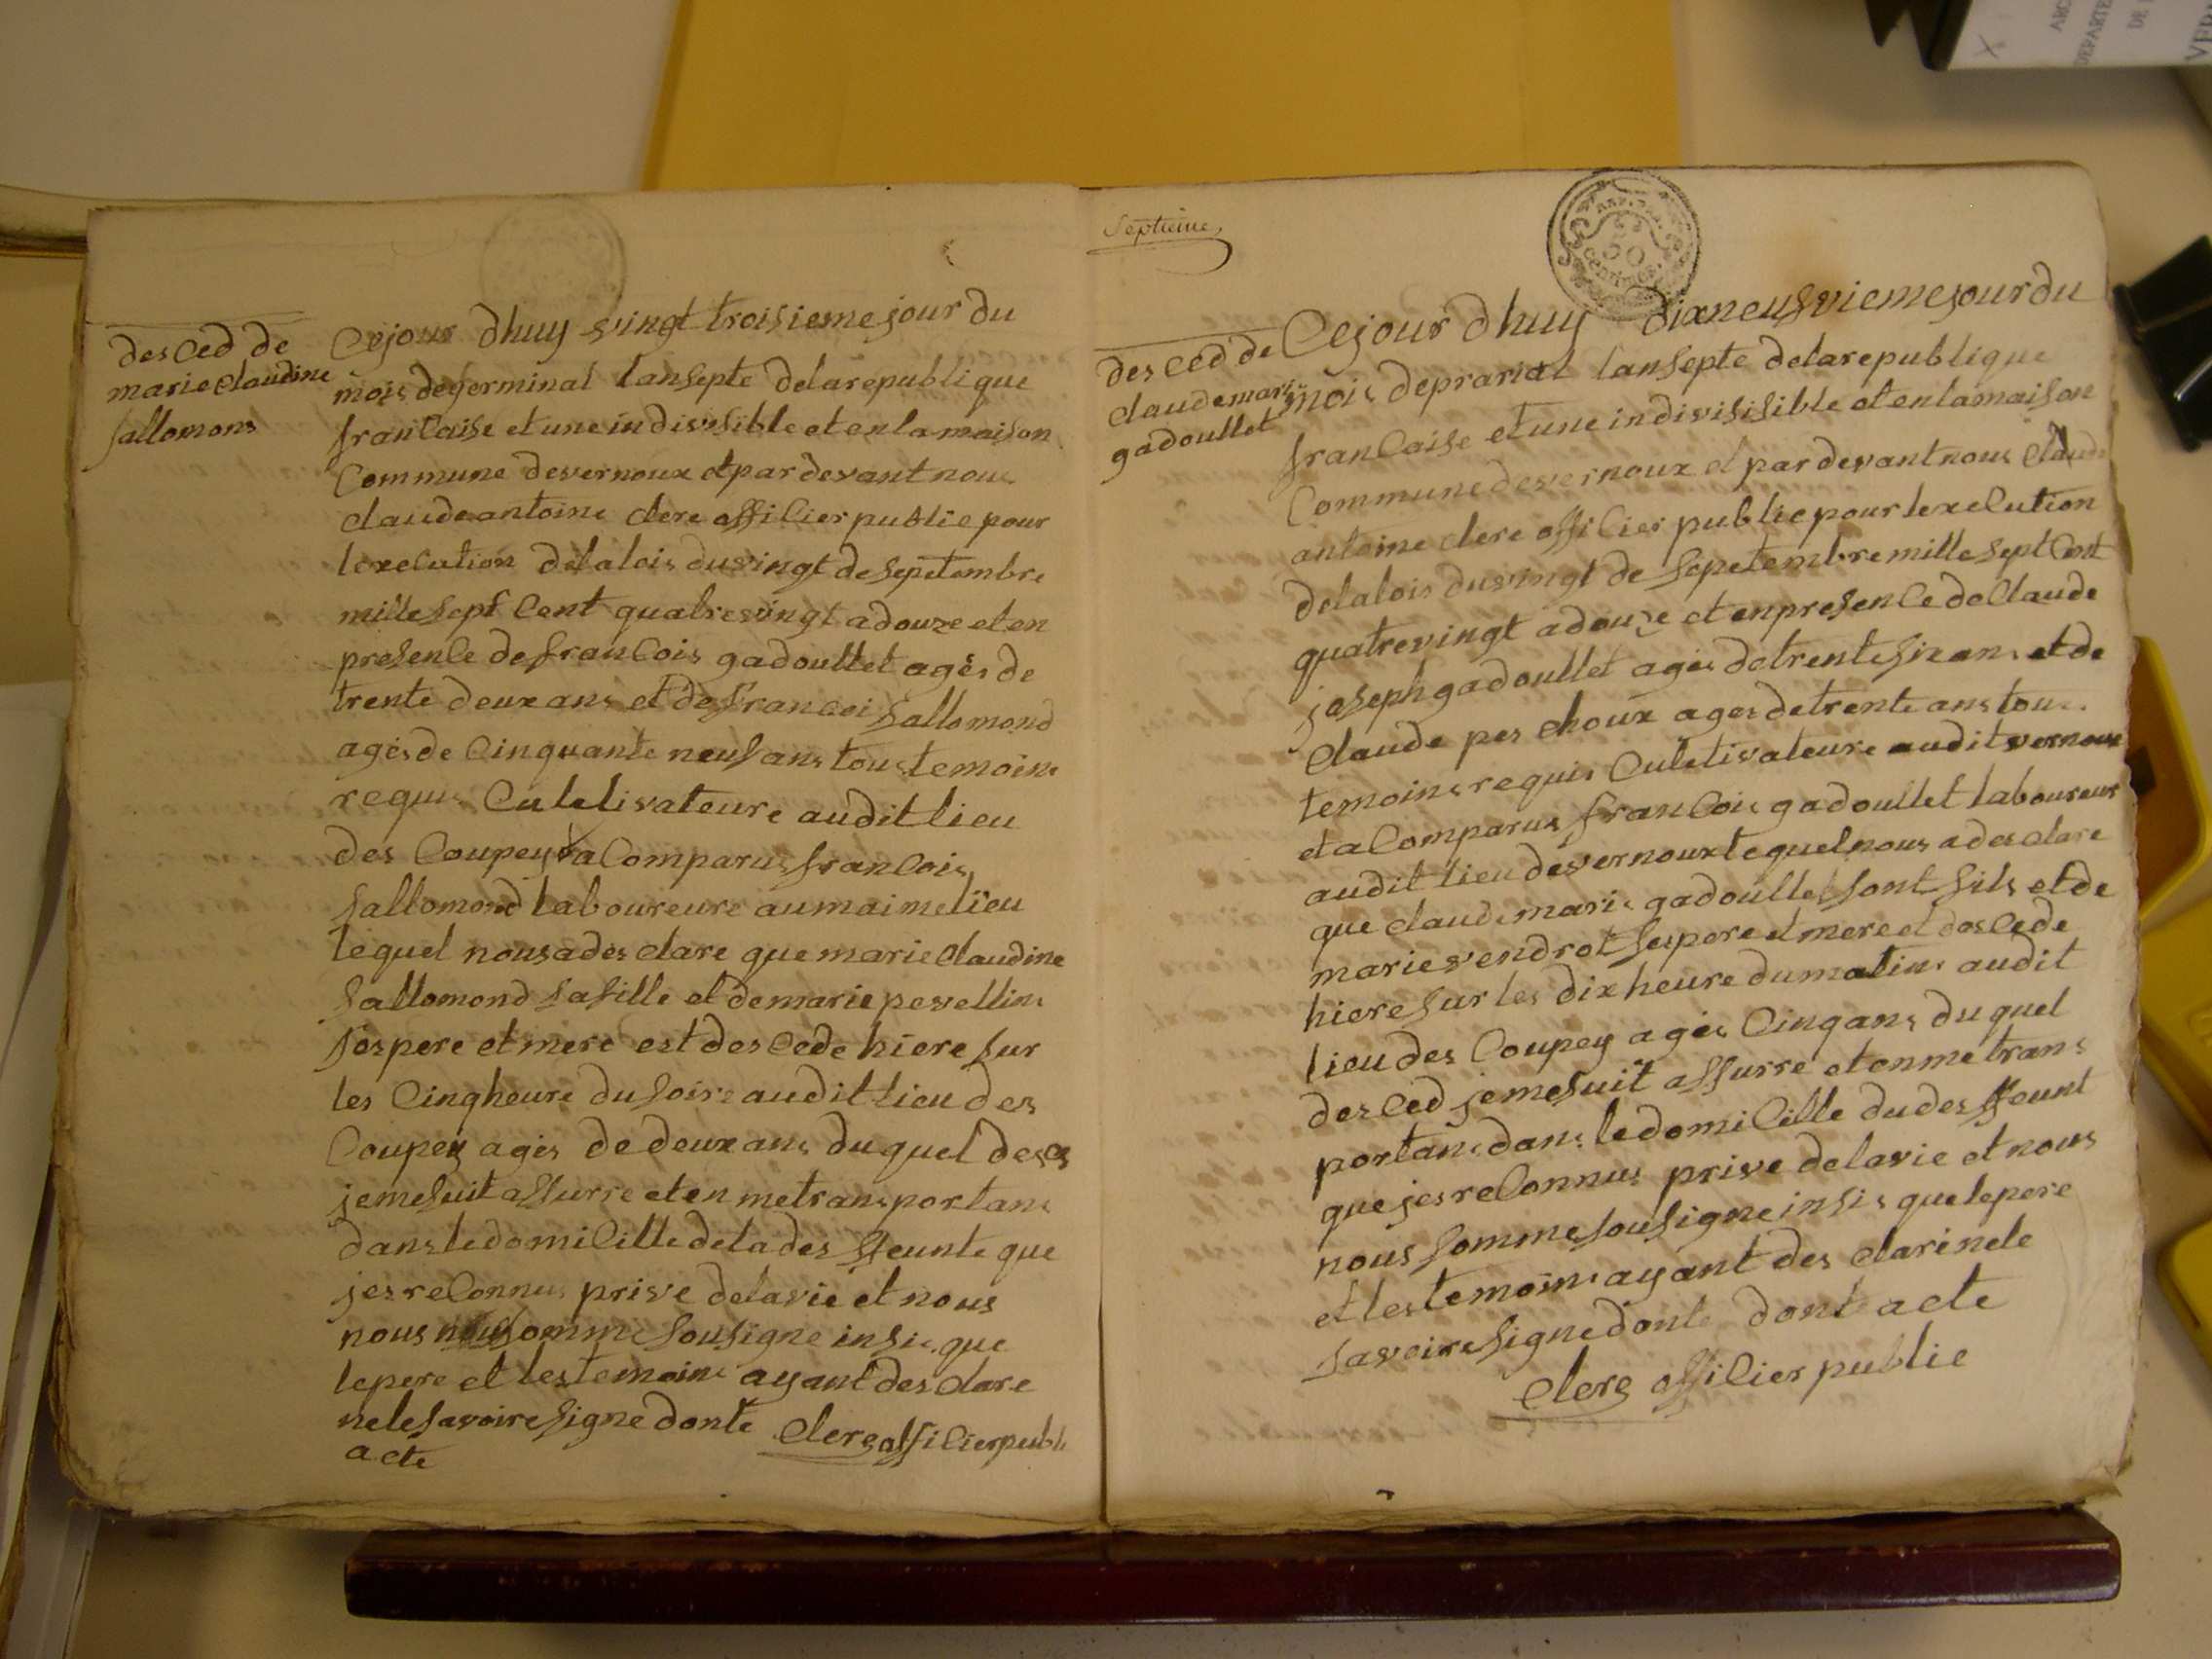 des ced de
marie claudine
sallomons
Cejour dhuy vingt troisieme jour du
mois degerminal lansepte delarepublique
francaise et une indivisible et en la maison
Commune devernoux et par devant nous
claude antoine clere officier publie pour
lexecution delalois duvingt de sepetembre
mille sept Cent quatrevingt adouze et en
presence de francois gadoullet agés de
trente deux ans et de francoi sallomond
agés de Cinquante neuf ans tous temoins
requis Culetivateure audit lieu
des Coupey & a Comparus francois
sallomond laboureure au maime lieu
lequel nous a des clare que marie claudine
sallomond sa fille et de marie pevellins
ses pere et mere est des cede hiere sur
les Cinq heure du soire audit lieu des
Coupey agés de deux ans du quel desces
jemesuit assurre et en metransportans
dans ledomicille delades ffeunte que
jes reconnus prive delavie et nous
nous somme sousigne insis que
lepere et les temoins ayant des clare
nele savoire signe donte
acte
clere officier publi
Septieme
REP. FRA.
50
centimes.
des ced de
claude marie
gadoullet
Cejour dhuy dixneufvieme jour du
mois deprarial lansepte delarepublique
francaise et une indivisisible et en lamaison
Commune devernoux et par devant nous claude
antoine clere officier publie pour lexecution
delalois duvingt de sepetembre mille sept Cent
quatrevingt adouze et en presence de claude
joseph gadoullet agés de trente six ans et de
claude pes choux ages de trente ans tous
temoins requis Culetivateure audit vernoux
et a Comparus francois gadoullet laboureur
audit lieu devernoux lequel nous a des clare
que claude marie gadoullet sont fils et de
marie vendrot ses pere et mere et des cede
hiere sur les dix heure du matins audit
lieu des Coupey agés Cinq ans du quel
des ced jemesuit assurre et en me trans
portans dans ledomicille dudes ffeunt
que jes reconnus prive delavie et nous
nous somme sousigne insis que lepere
et les temoins ayant des clare nele
savoire signe donte dont acte
clere officier publie